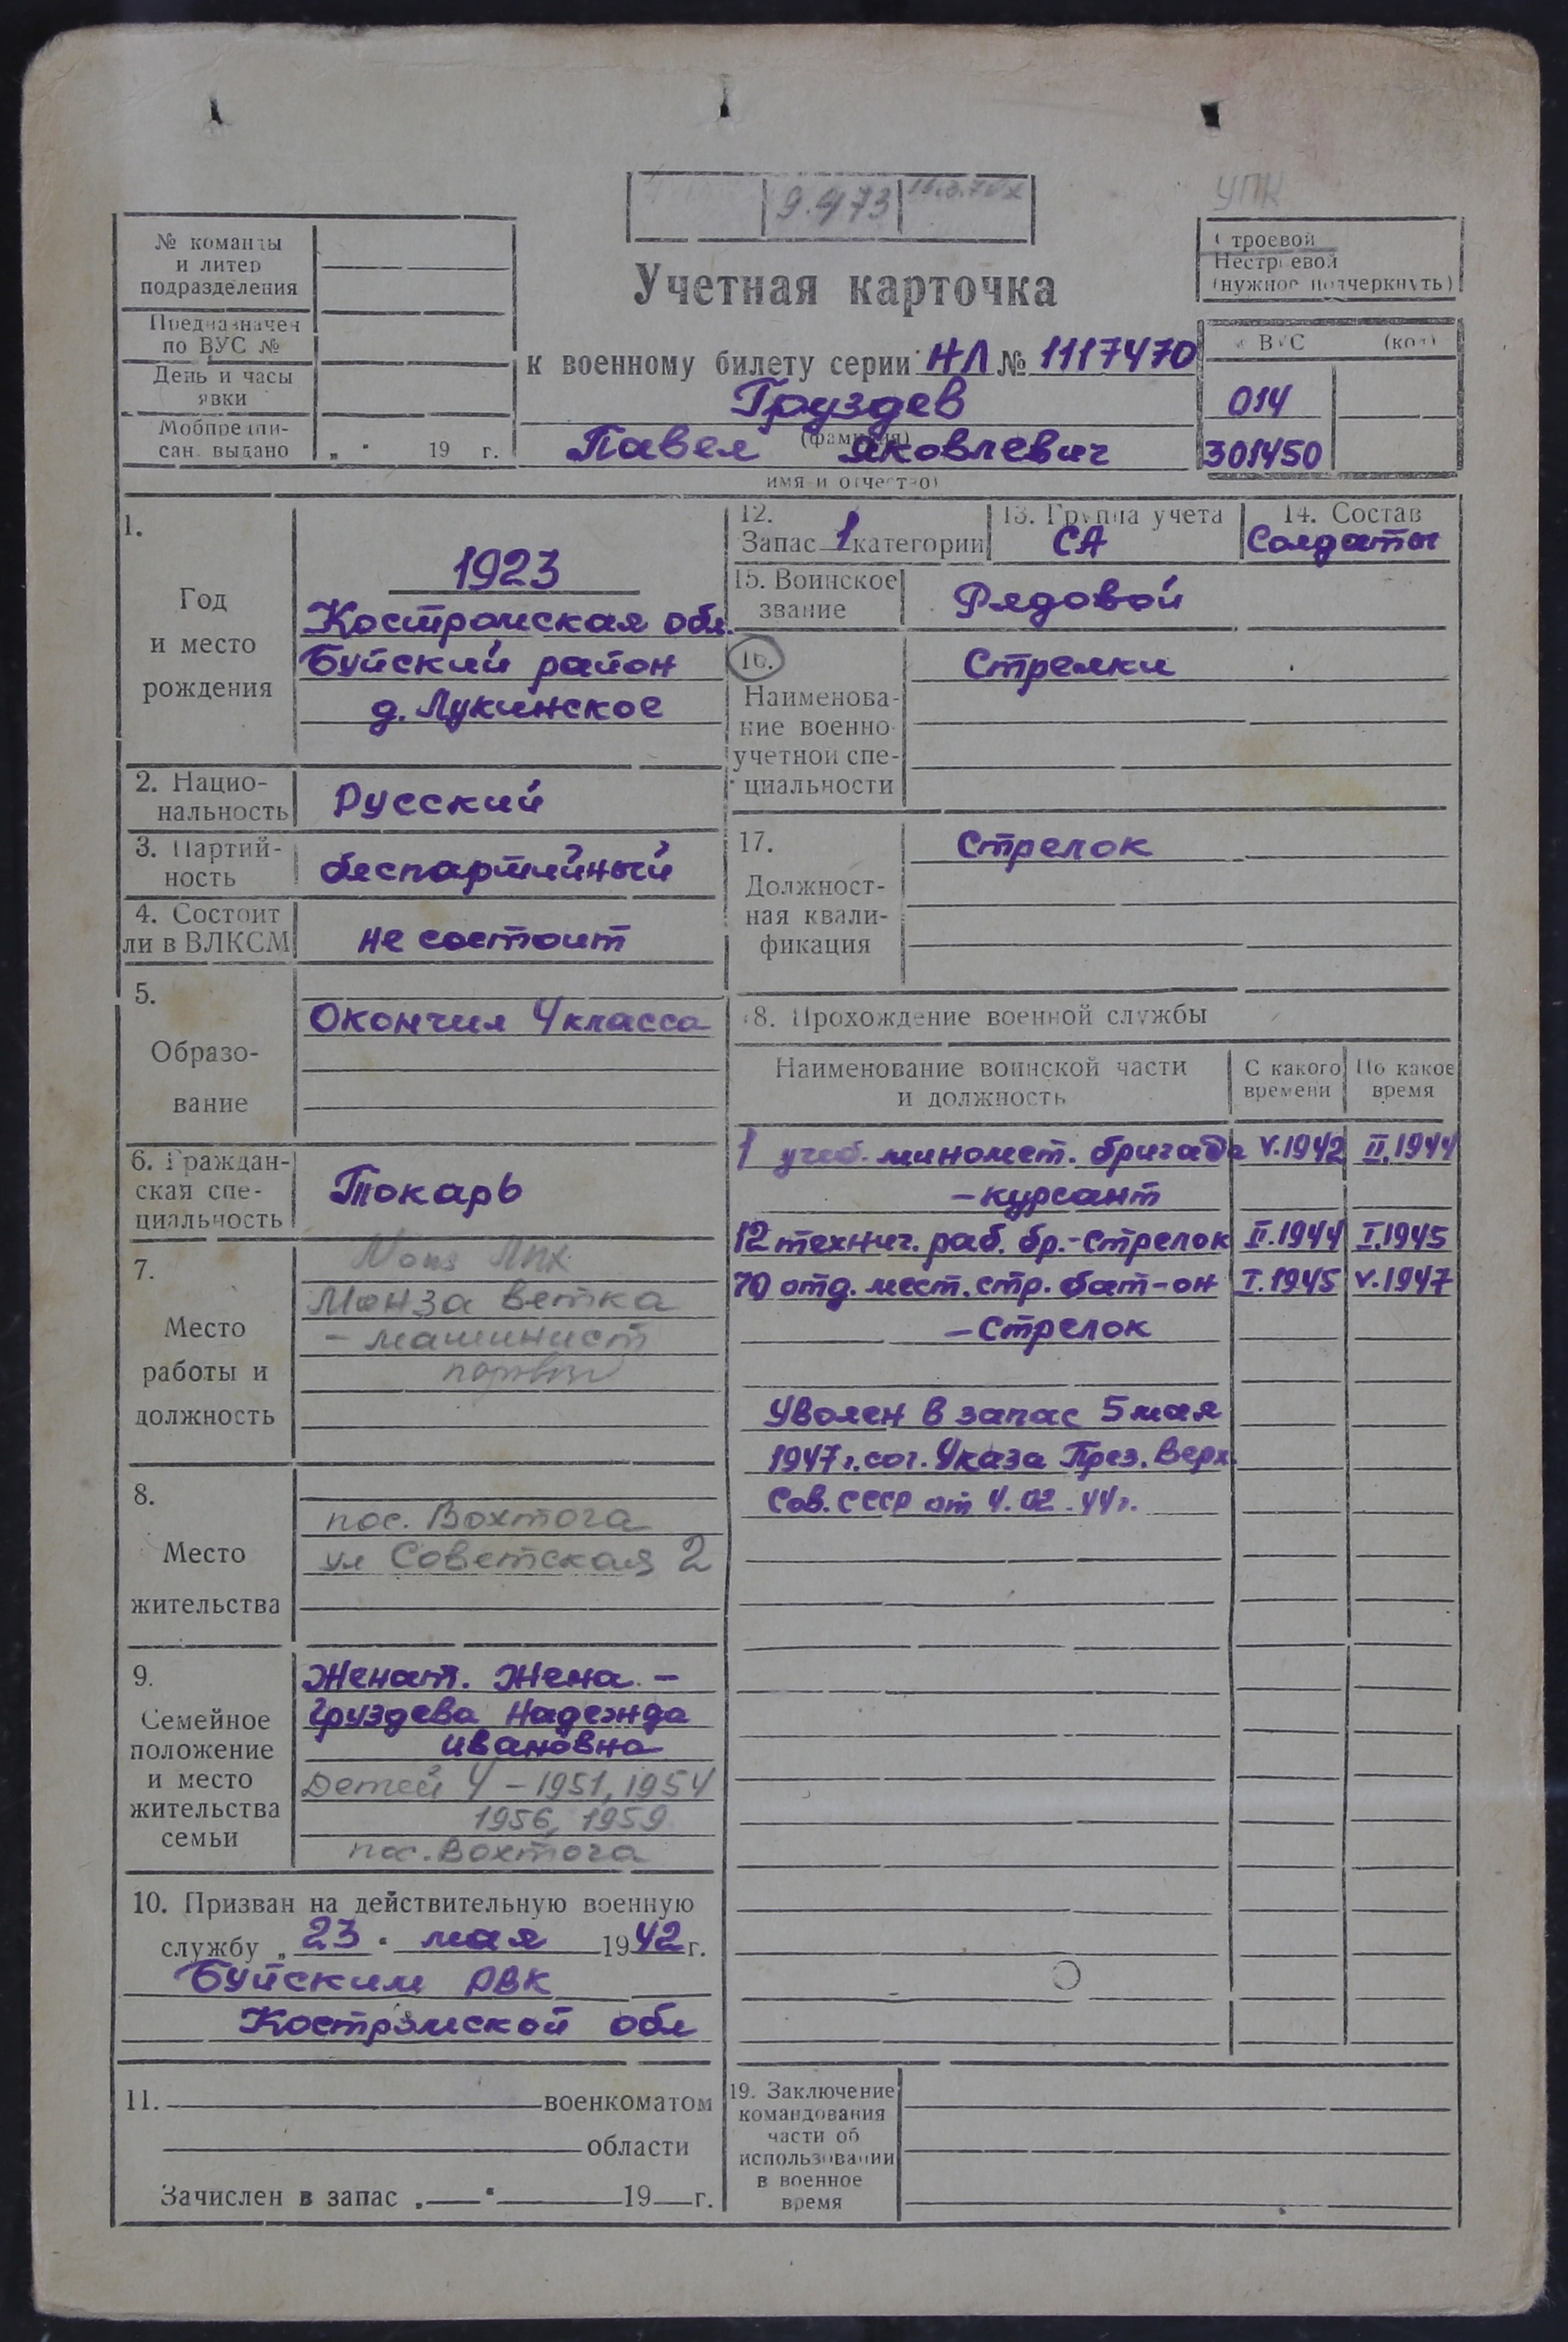 УПК
9.4/73
№ команды
и литер
подразделения
Предназначен
по ВУС №
День и часы
явки
Мобпредпи-
сан. выдано „ " 19 г.
Учетная карточка
к военному билету серии НЛ № 1117470
Груздев
(фамилия)
Павел Яковлевич
имя и отчество)
Строевой
Нестроевой
(нужное подчеркнуть)
ВУС (код)
014
301450
1.
Год
и место
рождения
1923
Костромская обл.
Буйский район
д. Лукинское
2. Нацио-
нальность
Русский
3. Партий-
ность
беспартийный
4. Состоит
ли в ВЛКСМ
не состоит
5.
Образо-
вание
Окончил 4 класса
6. Граждан-
ская спе-
циальность
Токарь
7.
Место
работы и
должность
ЛПХ
Монза ветка
- машинист
8.
Место
жительства
пос. Вохтога
ул Советская 2
9.
Семейное
положение
и место
жительства
семьи
Женат. Жена -
Груздева Надежда
Ивановна
Детей 4 - 1951, 1954
1956, 1959
пос. Вохтога
10. Призван на действительную военную
службу „ 23 " мая 1942 г.
Буйским РВК
Костромской обл
11. военкоматом
области
Зачислен в запас „ " 19 г.
12.
Запас 1 категории
13. Группа учета
СА
14. Состав
Солдаты
15. Воинское
звание
Рядовой
16.
Наименова-
ние военно-
учетной спе-
циальности
Стрелки
17.
Должност-
ная квали-
фикация
Стрелок
18. Прохождение военной службы
Наименование воинской части
и должность
С какого
времени
По какое
время
1 учеб. миномет. бригада V.1942 II.1944
- курсант
12 технич. раб. бр. - стрелок II.1944 I.1945
70 отд. мест. стр. бат-он I.1945 V.1947
- Стрелок
Уволен в запас 5 мая
1947 г. сог. Указа През. Верх.
Сов. СССР от 4.02.44г.
19. Заключение
командования
части об
использовании
в военное
время